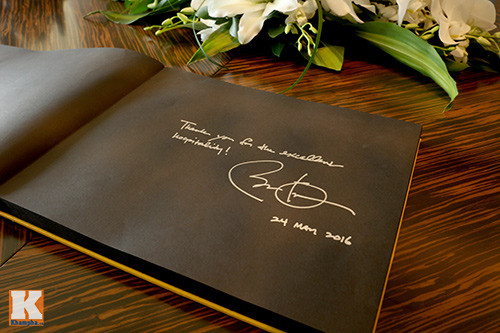 Thank you for the excellent
hospitality!
24 May 2016
K